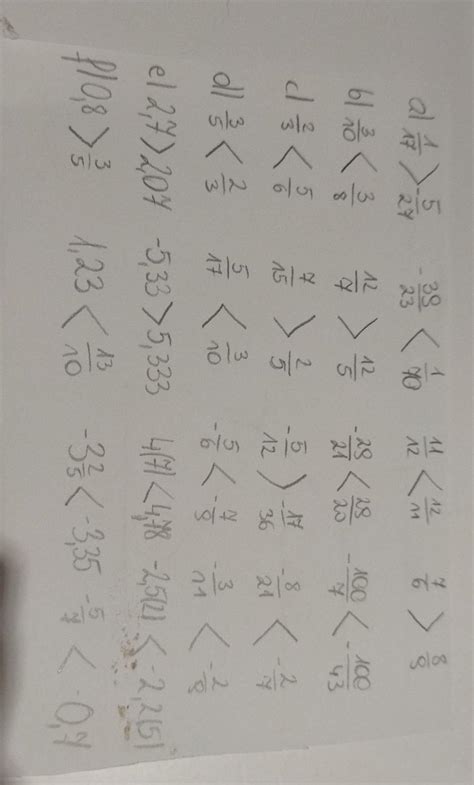 a) 1/17 > -5/27   -39/23 < 1/70   11/12 < 12/11   7/6 > 8/9
b) 3/10 < 3/8   12/7 > 12/5   -28/21 < 28/23   -100/7 < -100/43
c) 2/3 < 5/6   7/15 > 2/5   -5/12 > -17/36   -8/21 < -2/7
d) 3/5 < 2/3   5/17 < 3/10   -5/6 < -7/9   -3/11 < -2/9
e) 2,7 > 2,07   -5,33 > 5,333   4,(7) < 4,78   -2,5(2) < -2,2(5)
f) 0,8 > 3/5   1,23 < 13/10   -3 2/5 < -3,35   -5/7 < -0,7